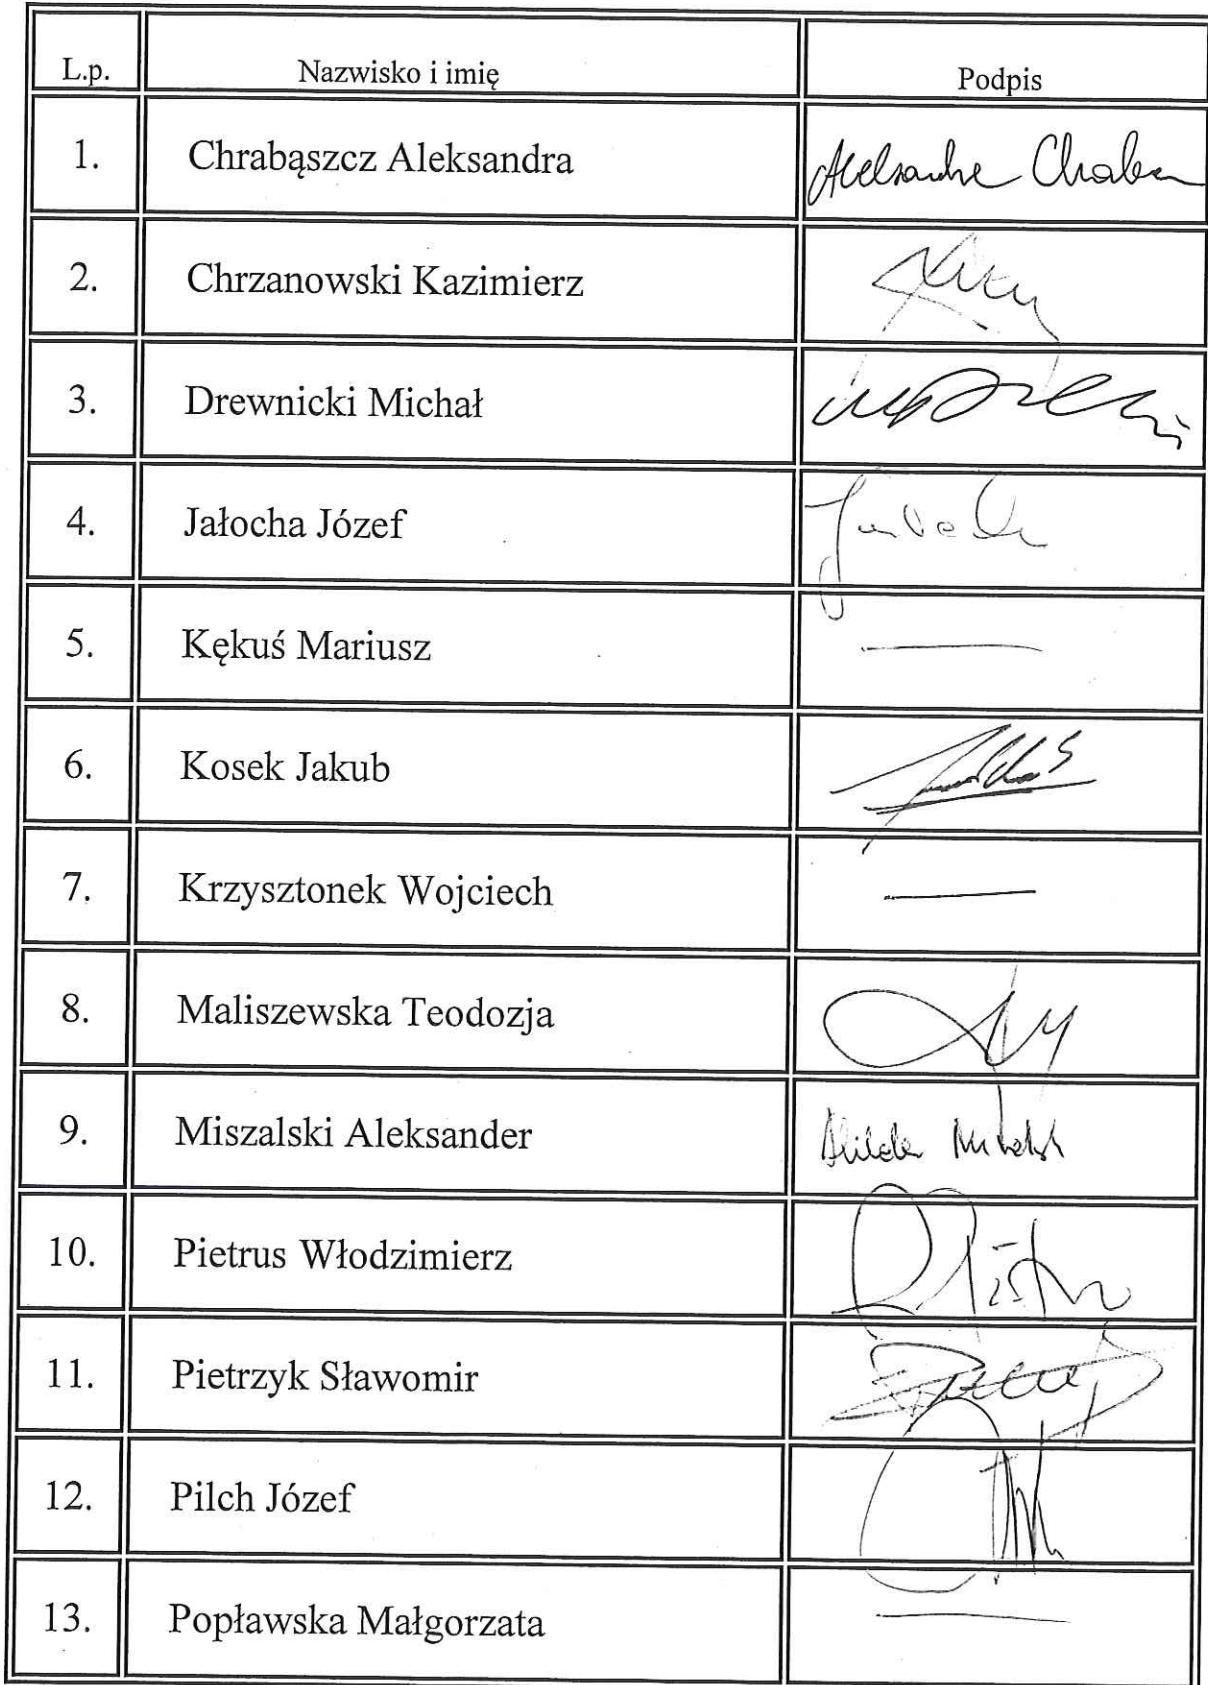 L.p. Nazwisko i imię Podpis
1. Chrabąszcz Aleksandra Aleksandra
2. Chrzanowski Kazimierz
3. Drewnicki Michał
4. Jałocha Józef
5. Kękuś Mariusz —
6. Kosek Jakub
7. Krzysztonek Wojciech —
8. Maliszewska Teodozja
9. Miszalski Aleksander
10. Pietrus Włodzimierz
11. Pietrzyk Sławomir
12. Pilch Józef
13. Popławska Małgorzata —